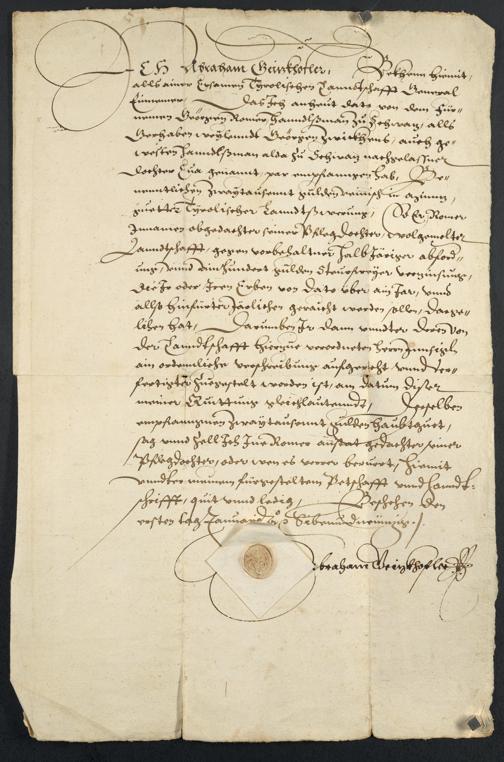 Ich Abraham Geizkhofler, Bekhenn hiemit,
alls ainer Ersamen Tyrolischen Lanndtschafft General
Einnemer, Das Ich anheut dato von dem Für-
nemen Geörgen Romer Hanndlßman zu Schwaz, alls
Gerhaben weylendt Geörgen Zwickhens, auch ge-
westen Hanndlßman alda zu Schwaz nachgelassner
Dochter Eua genannt, par empfanngen hab, Be-
nenntlichen Zwaytausent gulden reinisch in
guetter Tyrolischer Lanndtßwerung, So Er, Romer
Innamen abgedachter seiner Pflegdochter, wolgemelter
Lanndtschafft, gegen vorbehaltner halb Järiger abkhünd-
ung, vnnd ainhundert gulden Steursfreyer verzinsung,
die Ir oder Iren Erben von dato über ain Jar, vnnd
allso hinfürter Järlichen geraicht werden sollen, darge-
lihen hat, Darumben Ir dann vnndter deren von
der Lanndtschafft hierzue verordneten herrn Innsigln
ain ordennliche verschreibung aufgericht vnnd ver-
fertigter zuegestelt worden ist, am datum diser
meiner Quittung gleichlautendt, Desselben
empfanngnen Zwaytausent gulden haubtguet,
sag vnnd zell Ich Ine Romer anstat gedachter seiner
Pflegdochter, oder wen es verrer berüert, hiemit
vnndter meinem fürgestelten Petschafft vnd hanndt-
schrifft, quit vnnd ledig, Beschehen den
ersten tag Januarj Sibenundneunzig.
Abraham Geizkhofler